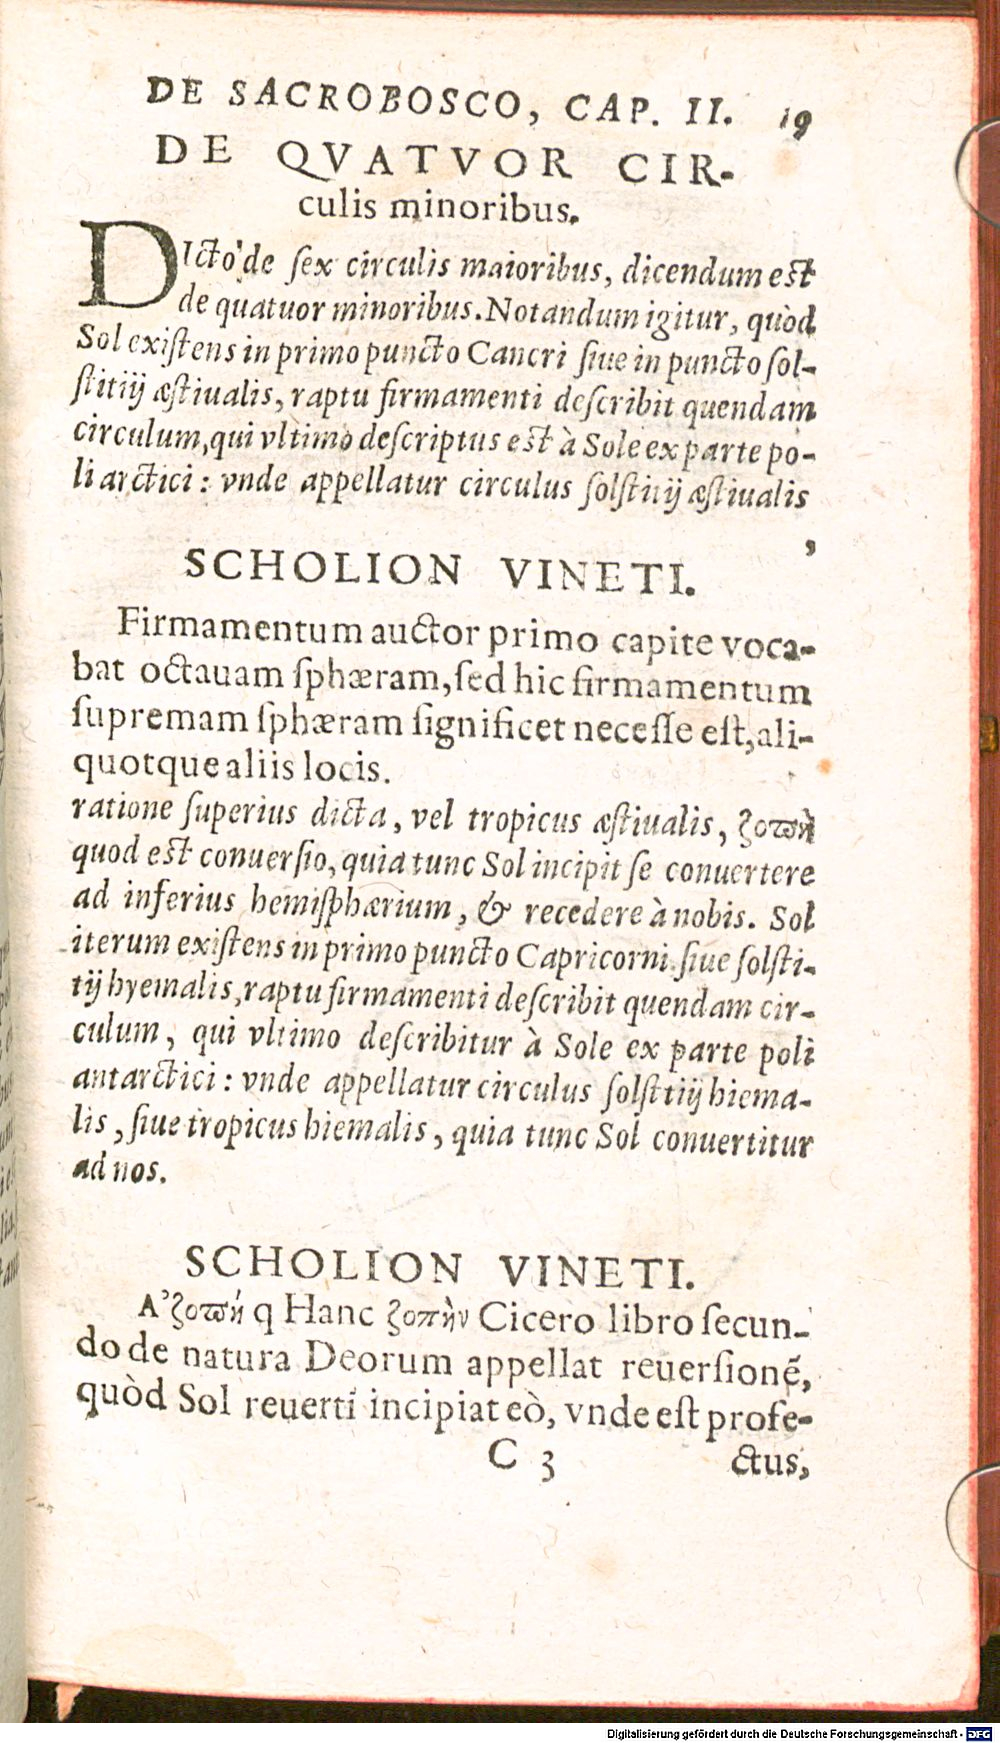 DE SACROBOSCO, CAP. II. 19
DE QVATVOR CIR-
culis minoribus.
DIcto de sex circulis maioribus, dicendum est
de quatuor minoribus. Notandum igitur, quòd
Sol existens in primo puncto Cancri siue in puncto sol-
stitij æstiualis, raptu firmamenti describit quendam
circulum, qui vltimò descriptus est à Sole ex parte po-
li arctici: vnde appellatur circulus solstitij æstiualis
,
SCHOLION VINETI.
Firmamentum auctor primo capite voca-
bat octauam sphæram, sed hic firmamentum
supremam sphæram significet necesse est, ali-
quotque aliis locis.
ratione superius dicta, vel tropicus æstiualis, ζοπὴ
quod est conuersio, quia tunc Sol incipit se conuertere
ad inferius hemisphærium, & recedere à nobis. Sol
iterum existens in primo puncto Capricorni siue solsti-
tij hyemalis, raptu firmamenti describit quendam cir-
culum, qui vltimo describitur à Sole ex parte poli
antarctici: vnde appellatur circulus solsttij hiema-
lis, siue tropicus hiemalis, quia tunc Sol conuertitur
ad nos.
SCHOLION VINETI.
Α᾽ζοπή q Hanc ζοπὴν Cicero libro secun-
do de natura Deorum appellat reuersionẽ,
quòd Sol reuerti incipiat eò, vnde est profe-
C 3 ctus,
Digitalisierung gefördert durch die Deutsche Forschungsgemeinschaft - DFG